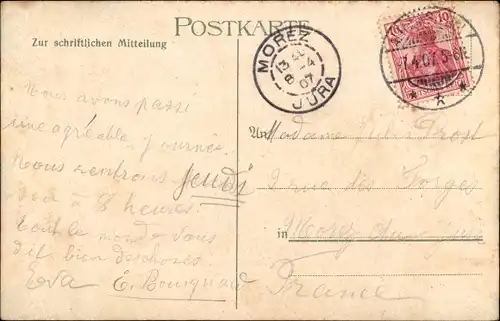 POSTKARTE
Zur schriftlichen Mitteilung
MOREZ
8 4
07
JURA
10
7.4.07.
Nous avons passé
une agréable journée.
Nous rentrons jeudi
soir à 8 heures
Tout le monde vous
dit bien des choses.
Eva
An Madame
rue des Forges
in Morez du Jura
France